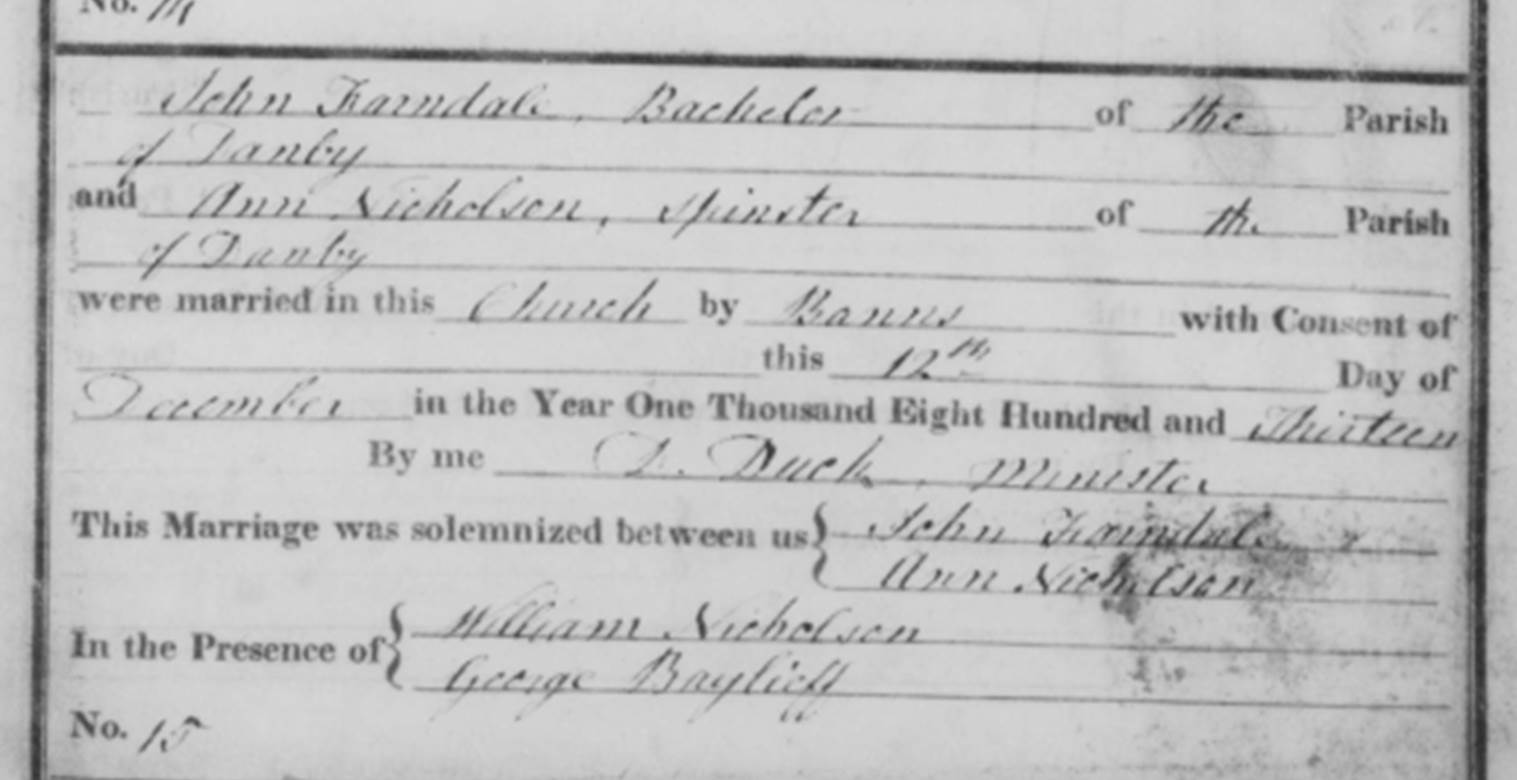 No. 14
John Farndale, Bachelor of the Parish
of Danby
and Ann Nicholson, Spinster of the Parish
of Danby
were married in this Church by Banns with Consent of
this 12th Day of
December in the Year One Thousand Eight Hundred and Thirteen
By me D. Duck, Minister
This Marriage was solemnized between us { John Farndale
Ann Nicholson
In the Presence of { William Nicholson
George Baylieff
No. 15